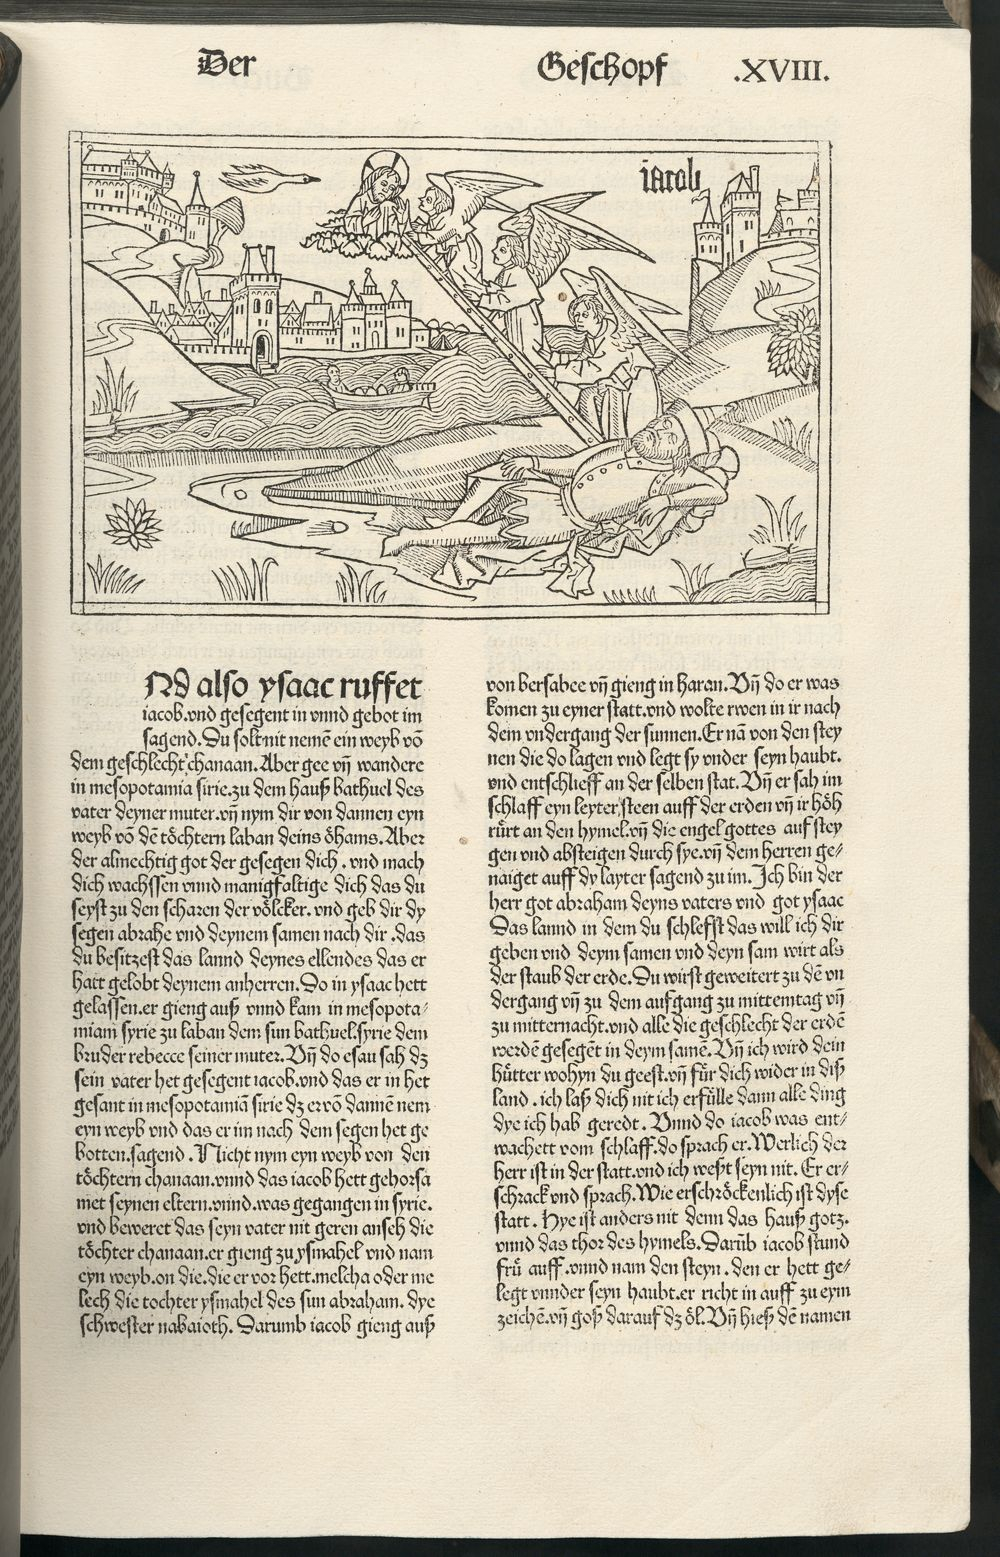 Der Geschopf .XVIII.
iacob
Nd also ysaac ruffet
iacob.vnd gesegent in vnnd gebot im
sagend.Du solt nit nemē ein weyb vō
dem geschlecht chanaan.Aber gee vn̄ wandere
in mesopotamia sirie.zu dem hauß bathuel des
vater deyner muter.vn̄ nym dir von dannen eyn
weyb vō dē töchtern laban deins öhams.Aber
der almechtig got der gesegen dich . vnd mach
dich wachssen vnnd manigfaltige dich das du
seyst zu den scharen der völcker. vnd geb dir dy
segen abrahe vnd deynem samen nach dir .das
du besitzest das lannd deynes ellendes das er
hatt gelobt deynem anherren.Do in ysaac hett
gelassen.er gieng auß vnnd kam in mesopota⸗
miam syrie zu laban dem sun bathuel.syrie dem
bruder rebecce seiner muter.Vn̄ do esau sah dz
sein vater het gesegent iacob.vnd das er in het
gesant in mesopotamiā sirie dz er vō dannē nem
eyn weyb vnd das er im nach dem segen het ge
botten.sagend . Nicht nym eyn weyb von den
töchtern chanaan.vnnd das iacob hett gehorsā
met seynen eltern.vnnd.was gegangen in syrie.
vnd beweret das seyn vater nit geren anseh die
töchter chanaan.er gieng zu ysmahel vnd nam
eyn weyb.on die.die er vor hett.melcha oder me
lech die tochter ysmahel des sun abraham. dye
schwester nabaioth. Darumb iacob gieng auß
von bersabee vn̄ gieng in haran.Vn̄ do er was
komen zu eyner statt.vnd wolte rwen in ir nach
dem vndergang der sunnen.Er nā von den stey
nen die do lagen vnd legt sy vnder seyn haubt.
vnd entschlieff an der selben stat.Vn̄ er sah im
schlaff eyn leyter steen auff der erden vn̄ ir höh
rürt an den hymel.vn̄ die engel gottes auf stey
gen vnd absteigen durch sye.vn̄ dem herren ge⸗
naiget auff dy layter sagend zu im.Ich bin der
herr got abraham deyns vaters vnd got ysaac
Das lannd in dem du schlefst das will ich dir
geben vnd deym samen vnd deyn sam wirt als
der staub der erde.Du wirst geweitert zu dē vn
dergang vn̄ zu dem aufgang zu mittemtag vn̄
zu mitternacht.vnd alle die geschlecht der erdē
werdē gesegēt in deym samē.Vn̄ ich wird dein
hütter wohyn du geest.vn̄ für dich wider in diß
land . ich laß dich nit ich erfülle dann alle ding
dye ich hab geredt . Vnnd do iacob was ent⸗
wachett vom schlaff.do sprach er.Werlich der
herr ist in der statt.vnd ich weßt seyn nit. Er er⸗
schrack vnd sprach.Wie erschröckenlich ist dyse
statt . Hye ist anders nit denn das hauß gotz.
vnnd das thor des hymels.Darūb iacob stund
frü auff.vnnd nam den steyn . den er hett ge⸗
legt vnnder seyn haubt.er richt in auff zu eym
zeichē.vn̄ goß darauf dz öl.Vn̄ hieß dē namen